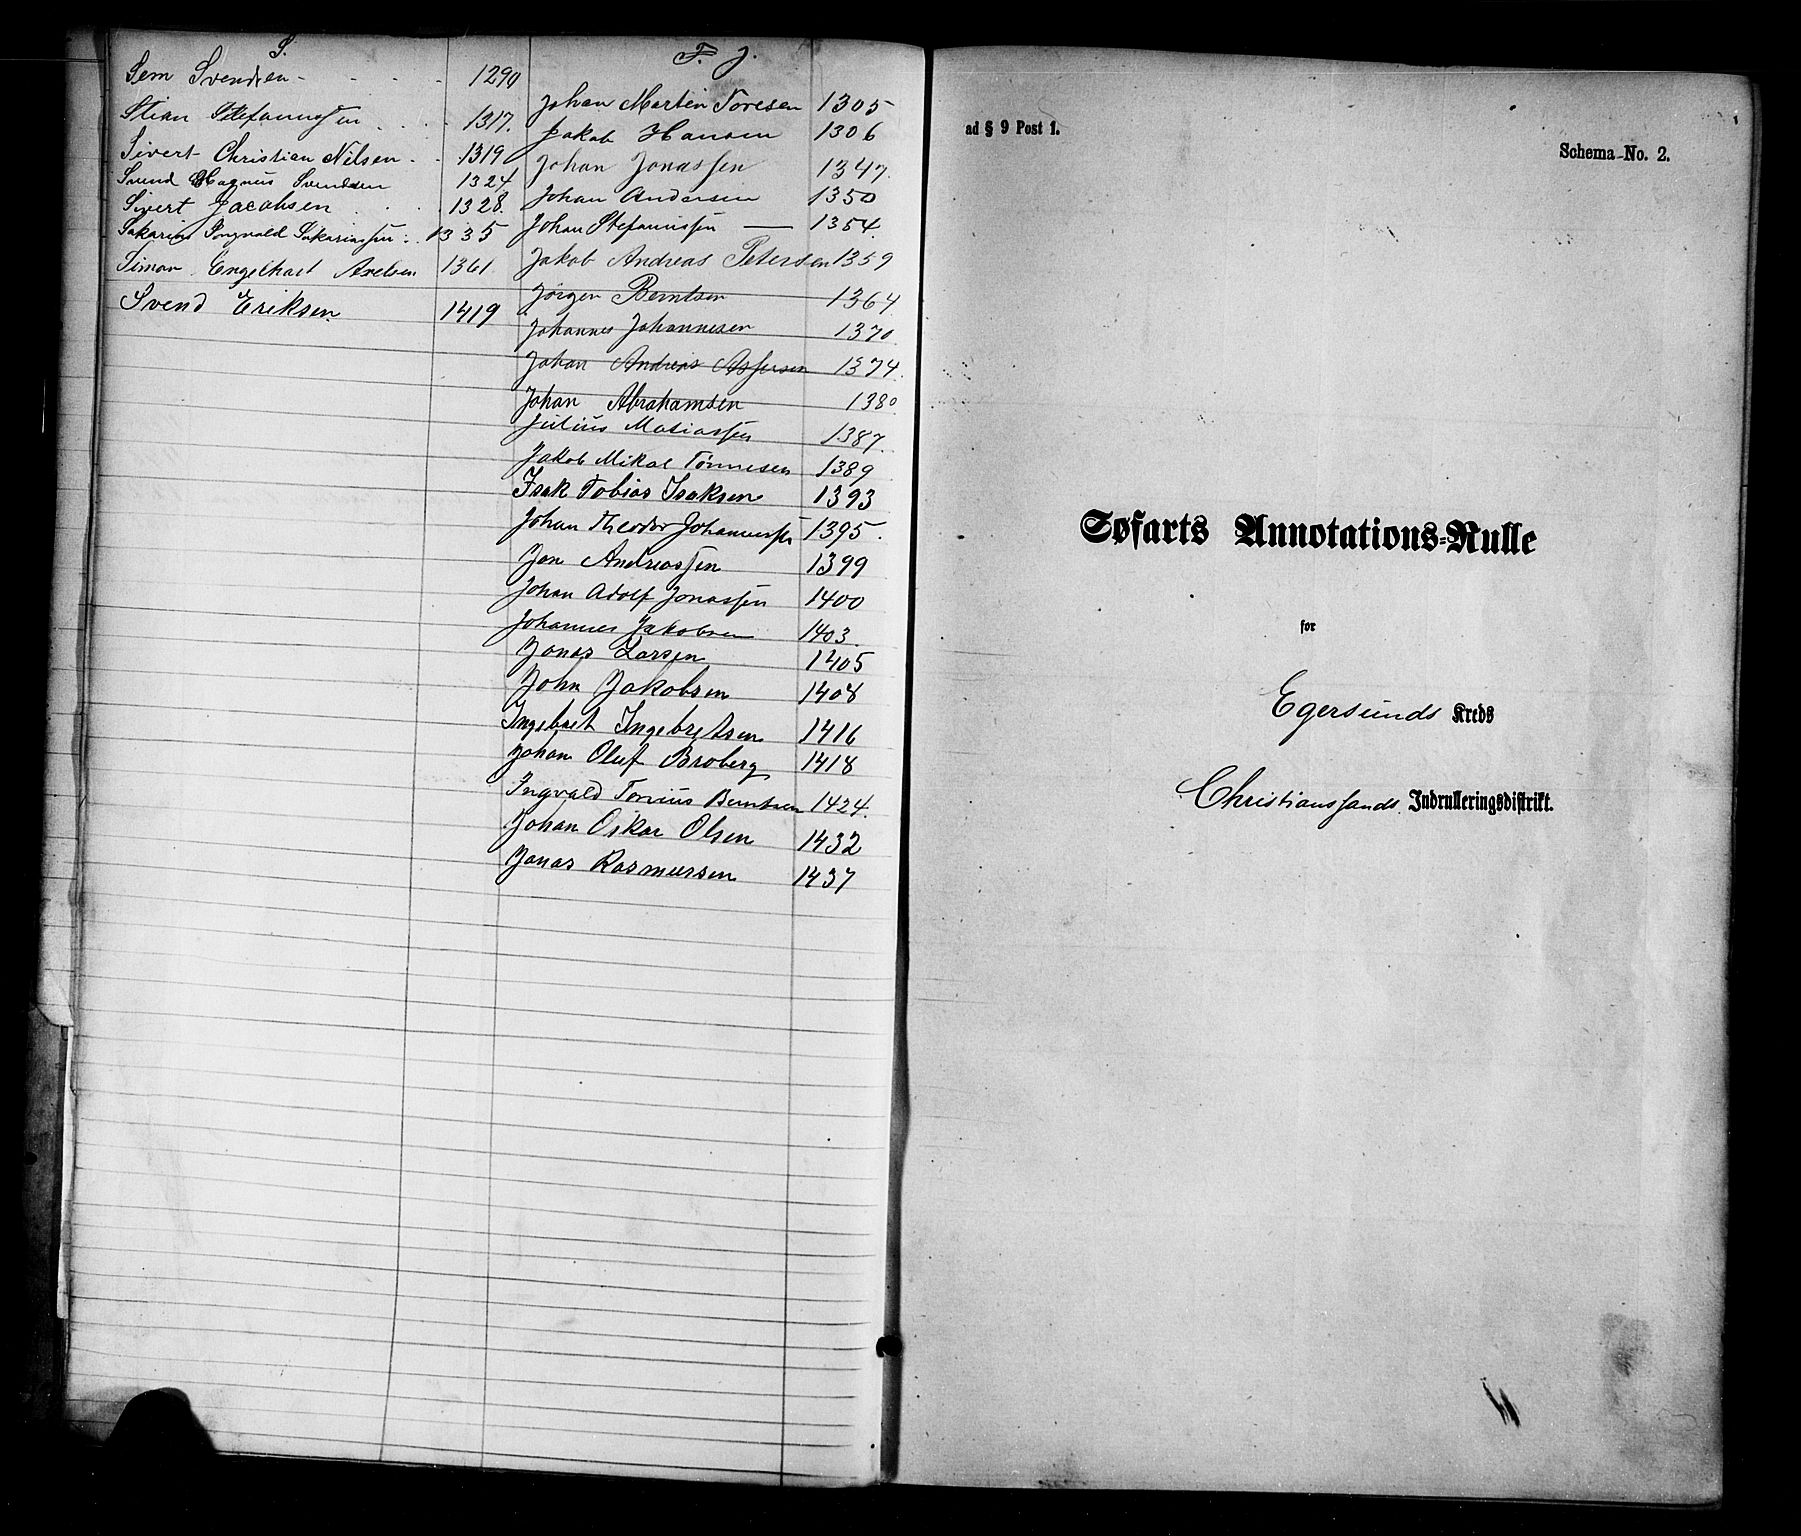 S.
Sem Svendsen - - - - 1290
Stian Steffanussen . . . 1317.
Sivert Christian Nilsen . . 1319
Svend Magnus Svendsen 1324.
Sivert Jacobsen . . . 1328.
Sakarias Sakariassen . 1335
Simon Engelhart Axelsen 1361
Svend Eriksen 1419
J.
Johan Martin Toresen 1305
Jakob Hansen 1306
Johan Jonassen 1347.
Johan Andersen 1350
Johan Stefanussen — 1354.
Jakob Andreas Petersen 1359
Jörgen Berntsen 1364
Johannes Johannesen 1370
Johan Andreas Assersen 1374.
Johan Abrahamsen 1380
Julius Matiassen 1387.
Jakob Mikal Tönnesen 1389
Isak Tobias Isaksen 1393
Johan Theodor Johannessen 1395.
Jon Andreassen 1399
Johan Adolf Jonassen 1400
Johannes Jakobsen 1403.
Jonas Larsen 1405
John Jakobsen 1408
Ingebret Ingebretsen 1416
Johan Oluf Broberg 1418
Ingvald Tonius Berntsen 1424.
Johan Oskar Olsen 1432
Jonas Rasmussen 1437
ad § 9 Post 1.
Schema No. 2.
Søfarts Annotations-Rulle
for
Egersunds Kreds
Christianssands Indrulleringsdistrikt.